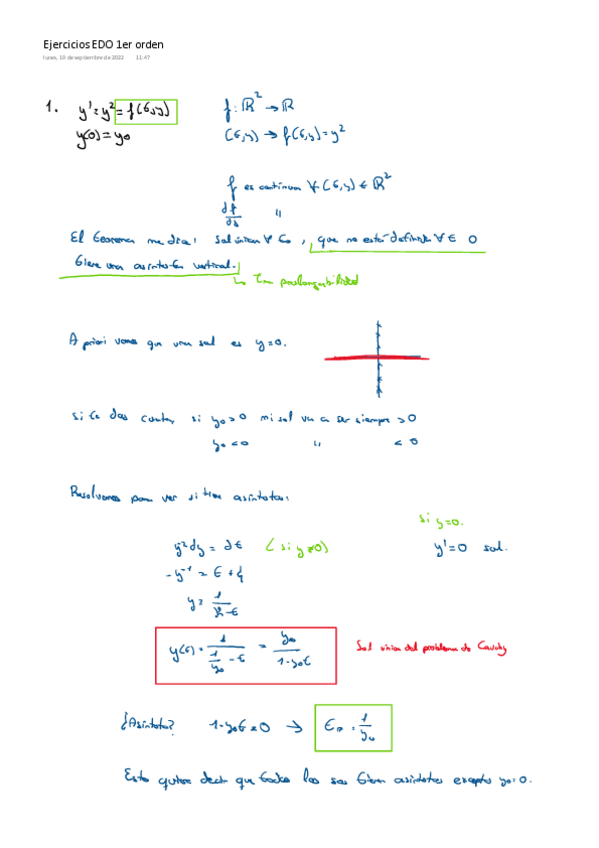 Ejercicios EDO 1er orden
lunes, 19 de septiembre de 2022 11:47
1. y' = y² = f(t,y) f: ℝ² → ℝ
y(0) = y₀ (t,y) → f(t,y) = y²
f es continua ∀ (t,y) ∈ ℝ²
df/dy "
El teorema me dice: sol única ∀ t₀, que no esté definida ∀ t o
tiene una asíntota vertical.
↳ Tm prolongabilidad
A priori vemos que una sol es y=0.
si te das cuenta, si y₀>0 mi sol va a ser siempre >0
y₀<0 " <0
Resolvemos para ver si tiene asíntotas:
si y=0.
y⁻²dy = dt (si y≠0) y'=0 sol.
-y⁻¹ = t + k
y = 1/(k-t)
y(t) = 1/(1/y₀ - t) = y₀/(1-y₀t) Sol única del problema de Cauchy
¿Asíntota? 1-y₀t=0 → = 1/y₀
Esto quiere decir que todas las sol tienen asíntotas excepto y₀=0.